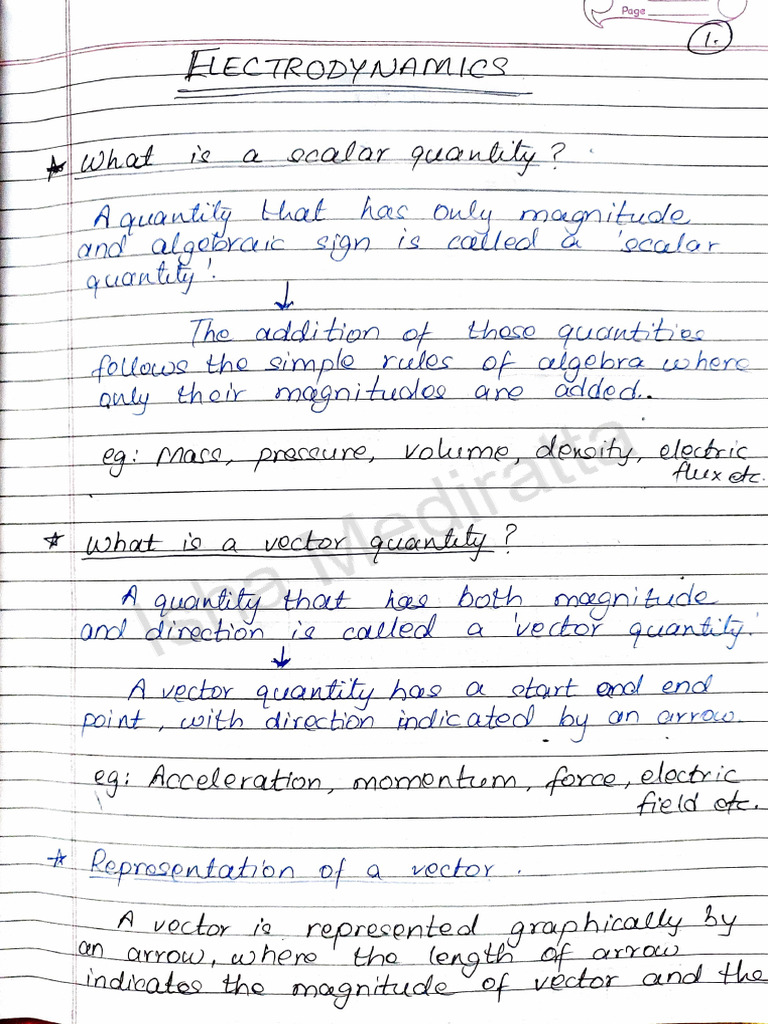 Page
1.
ELECTRODYNAMICS
* What is a scalar quantity?
A quantity that has only magnitude
and algebraic sign is called a 'scalar
quantity'.
↓
The addition of these quantities
follows the simple rules of algebra where
only their magnitudes are added.
eg: Mass, pressure, volume, density, electric
flux etc.
* What is a vector quantity?
A quantity that has both magnitude
and direction is called a 'vector quantity'
↓
A vector quantity has a start and end
point, with direction indicated by an arrow.
eg: Acceleration, momentum, force, electric
field etc.
* Representation of a vector.
A vector is represented graphically by
an arrow, where the length of arrow
indicates the magnitude of vector and the
Isha Mediratta